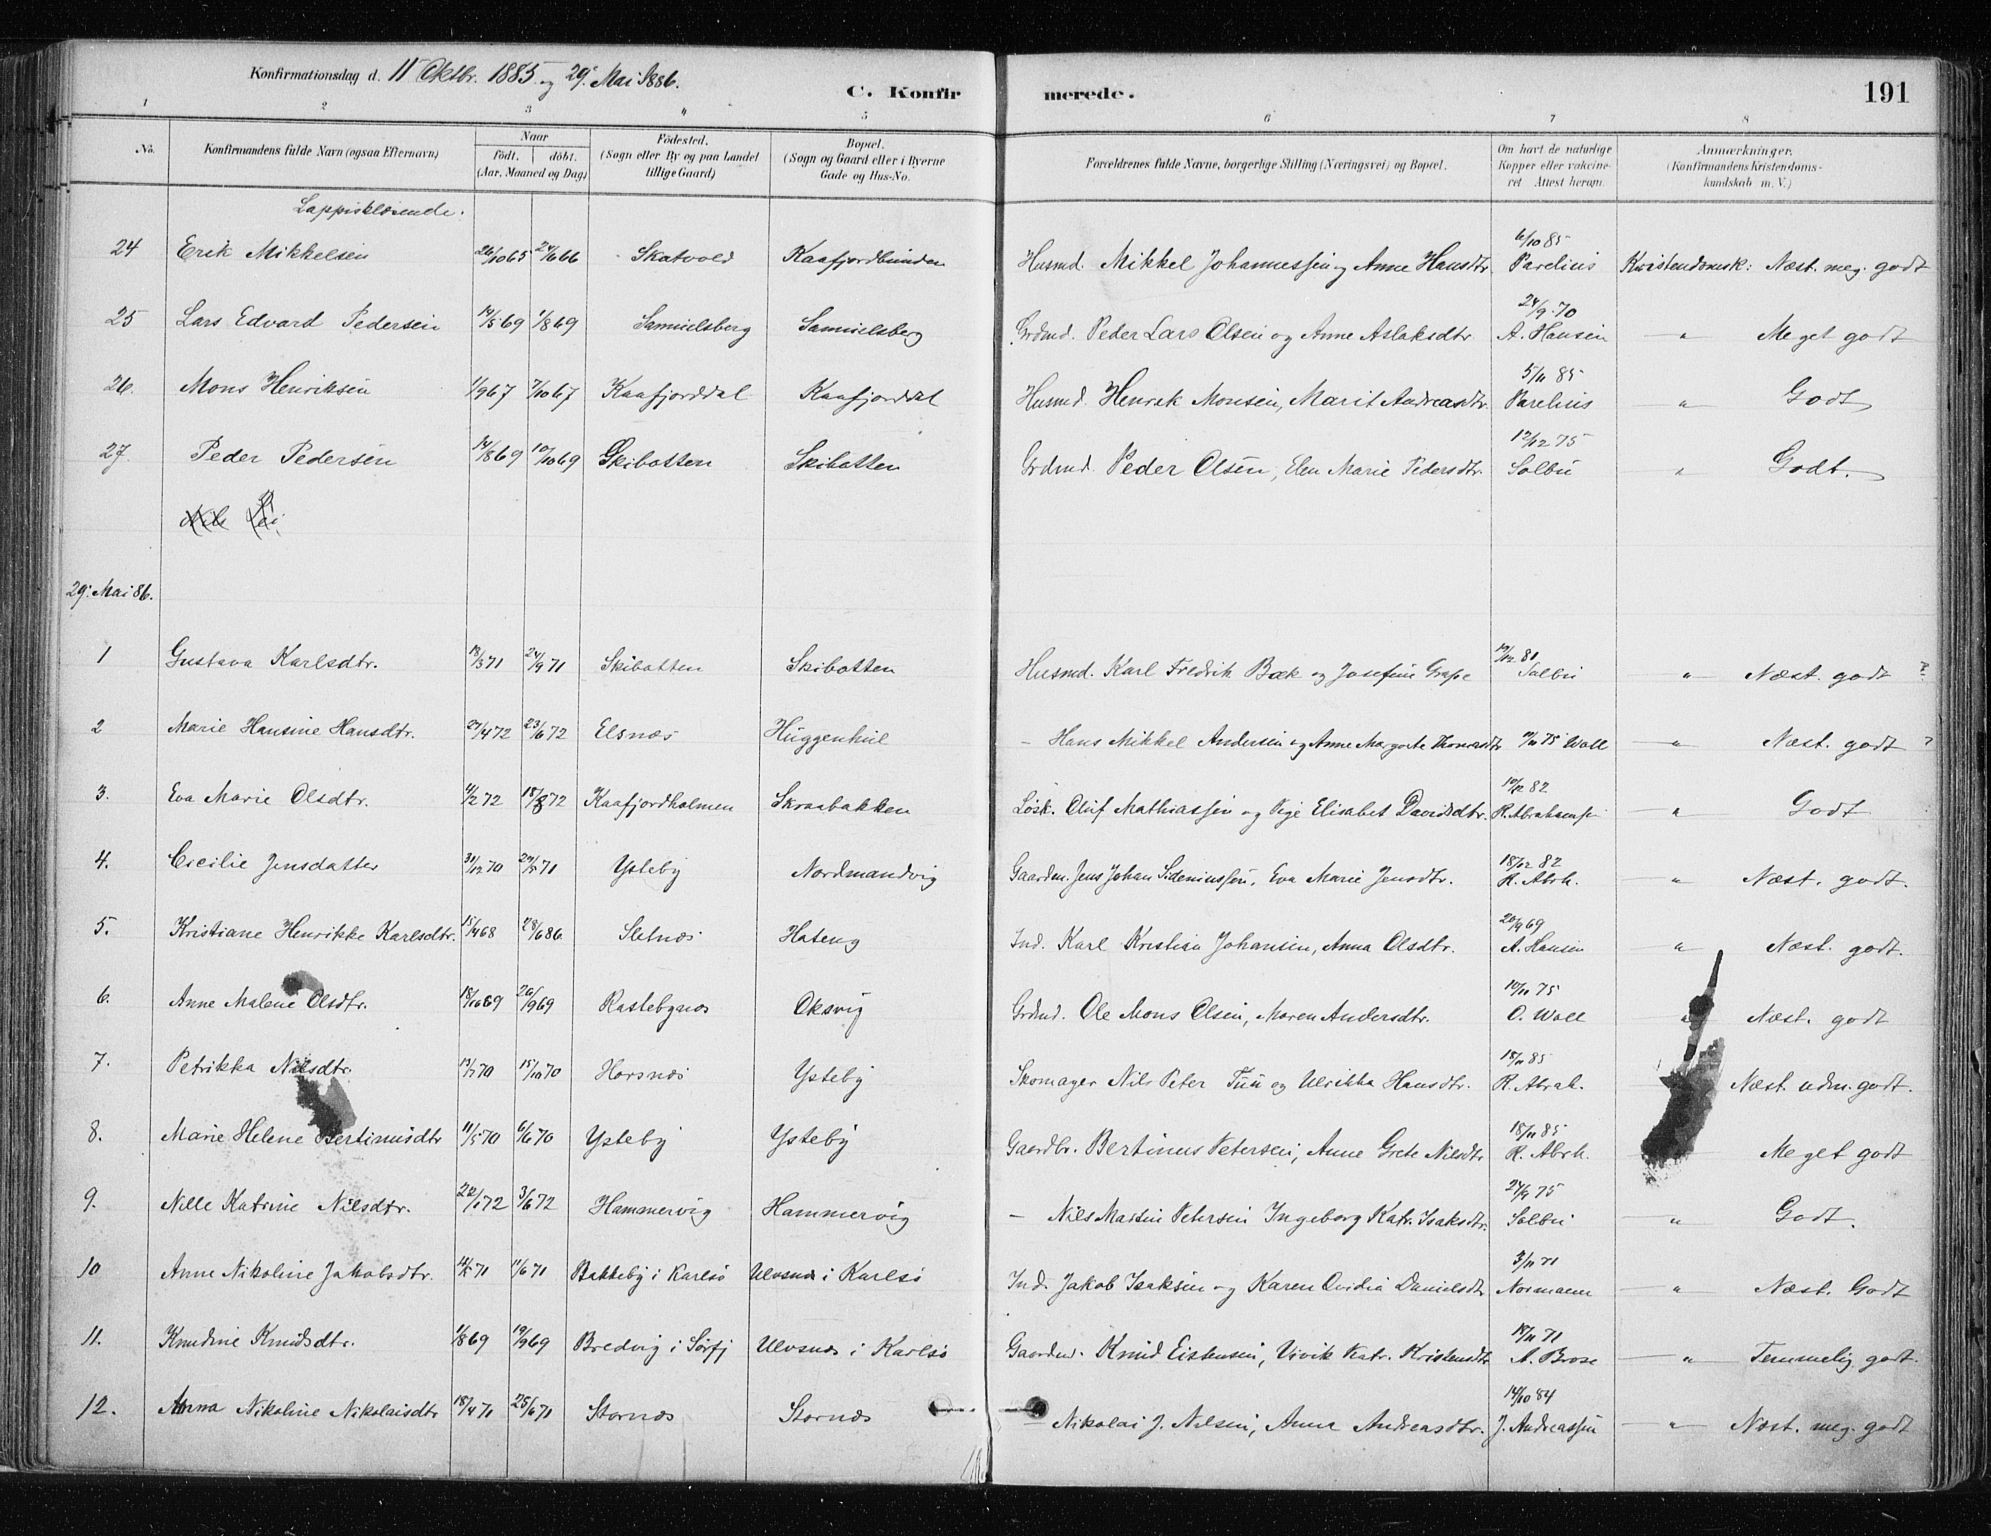 Konfirmationsdag d. 11 Oktbr. 1885 og 29. Mai 1886.
C. Konfirmerede.
191
1 2 3 4 5 6 7 8
No. Konfirmandens fulde Navn (ogsaa Efternavn) Naar født. døbt. (Aar, Maaned og Dag) Födested. (Sogn eller By og paa Landet tillige Gaard) Bopæl. (Sogn og Gaard eller i Byerne Gade og Hus-No. Forældrenes fulde Navne, borgerlige Stilling (Næringsvei) og Bopæl. Om havt de naturlige Kopper eller vakcineret Attest herom. Anmærkninger. (Konfirmandens Kristendomskundskab m. V.)
Lappisklæsende.
24 Erik Mikkelsen 26/10 65 24/6 66 Skatvold Kaafjordbunden Husmd. Mikkel Johannessen og Anne Hansdtr. 6/10 85 Parelius Kristendomsk: Næst. meg. godt
25 Lars Edvard Pedersen 14/5 69 1/8 69 Samuelsberg Samuelsberg Grdmd. Peder Lars Olsen og Anne Aslaksdtr 24/9 70 A. Hansen " Meget godt
26. Mons Henriksen 1/9 67 7/10 67 Kaafjorddal Kaafjorddal Husmd. Henrik Monsen, Marit Andreasdtr. 5/11 85 Parelius " Godt
27. Peder Pedersen 14/8 69 10/10 69 Skibotten Skibotten Grdmd. Peder Olsen, Elen Marie Pedersdtr. 12/12 75 Solbu " Godt.
29. Mai 86.
1 Gustava Karlsdtr. 18/3 71 24/9 71 Skibotten Skibotten Husmd. Karl Fredrik Bæk og Josefine Grape 12/12 81 Solbu " Næst. godt ?
2 Marie Hansine Hansdtr. 27/4 72 23/6 72 Elsnæs Huggenhul – Hans Mikkel Andersen og Anne Margrete Thomasdtr 11/11 75 Woll " Næst. godt ?
3. Eva Marie Olsdtr. 4/2 72 18/8 72 Kaafjordholmen Skraabakken Løsk. Oluf Mathiassen og Pige Elisabet Davidsdtr. 10/12 82 R. Abrahamsen " Godt
4. Cecilie Jensdatter 31/12 70 29/5 71 Ysteby Nordmandvig Gaardm. Jens Johan Sideniussen, Eva Marie Jensdtr. 18/12 82 R. Abrh. " Næst. godt.
5. Kristiane Henrikke Karlsdtr. 15/4 68 28/6 86 Sletnæs Hateng Ind. Karl Kristian Johansen, Anna Olsdtr. 20/9 69 A. Hansen " Næst. godt.
6. Anne Malene Olsdtr. 18/10 69 26/9 69 Rastebynæs Oksvig Grdmd. Ole Mons Olsen, Maren Andersdtr. 10/11 75 O. Woll " Næst. godt
7. Petrikka Nilsdtr. 13/7 70 15/10 70 Horsnæs Ysteby Skomager Nils Peter Tuu og Ulrikka Hansdtr. 18/11 85 R. Abrah. Næst. udm. godt.
8. Marie Helene Bertinusdtr 11/5 70 6/6 70 Ysteby Ysteby Gaardbr. Bertinus Petersen, Anne Grete Nilsdtr 18/11 85 R. Abrh. Meget godt
9. Nille Katrine Nilsdtr. 22/1 72 3/6 72 Hammervig Hammervig – Nils Martin Petersen Ingeborg Katr. Isaksdtr. 24/9 75 Solbu " Godt.
10 Anne Nikoline Jakobsdtr. 12/5 71 11/6 71 Bakkeby i Karlsø Ulvsnæs i Karlsø Ind. Jakob Isaksen og Karen Ovidia Danielsdtr 3/11 71 Normann " Næst. Godt
11. Knudine Knudsdtr. 1/8 69 19/9 69 Bredvig i Sørfj Ulvsnæs i Karlsø Gaardmd. Knud Eistensen, Vivik Katr. Kristensdtr 18/11 71 A. Brose " Temmelig godt.
12. Anna Nikoline Nikolaisdtr 18/4 71 25/6 71 Stornæs Stornæs – Nikolai J. Nilsen, Anna Andreasdtr. 14/10 84 J. Andreassen " Næst. meg. godt